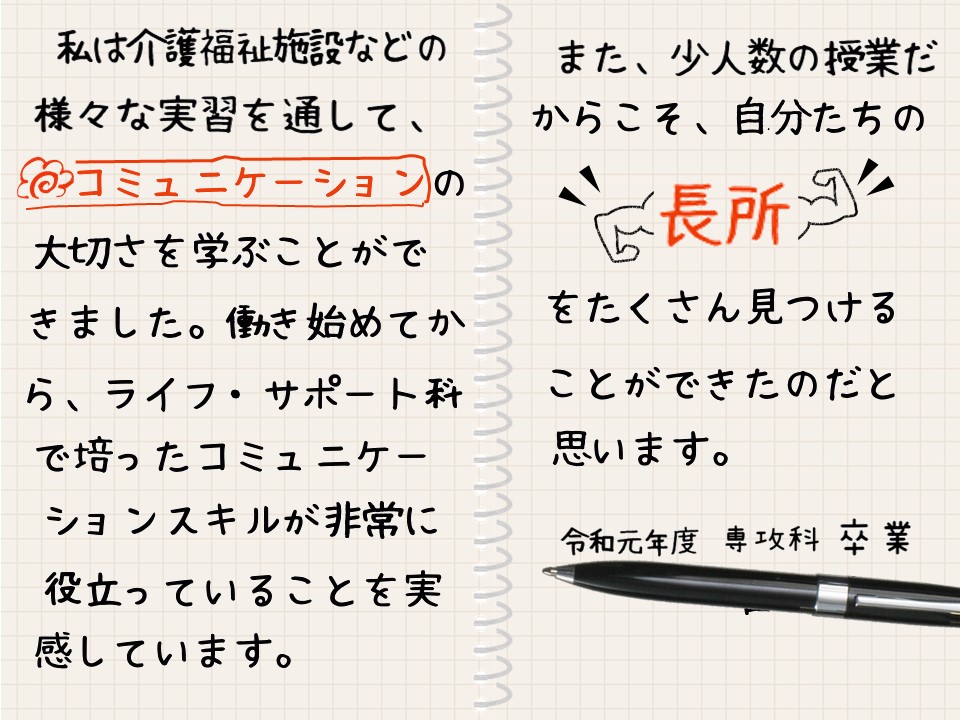 私は介護福祉施設などの
様々な実習を通して、
コミュニケーションの
大切さを学ぶことがで
きました。働き始めてか
ら、ライフ・サポート科
で培ったコミュニケー
ションスキルが非常に
役立っていることを実
感しています。
また、少人数の授業だ
からこそ、自分たちの
長所
をたくさん見つける
ことができたのだと
思います。
令和元年度 専攻科 卒業